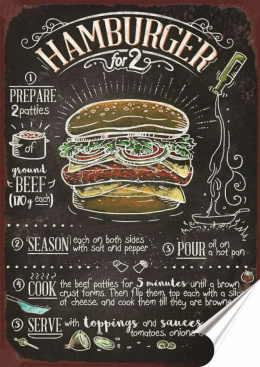 HAMBURGER
for 2
1
PREPARE
2 patties
of
ground
BEEF
(170g each)
2 SEASON each on both sides
with salt and pepper
3 POUR oil on
a hot pan
4 COOK the beef patties for 5 minutes until a brown
crust forms. Then flip them, top each with a slic
of cheese and cook them till they are brown
5 SERVE with toppings and sauces
tomatoes, onions